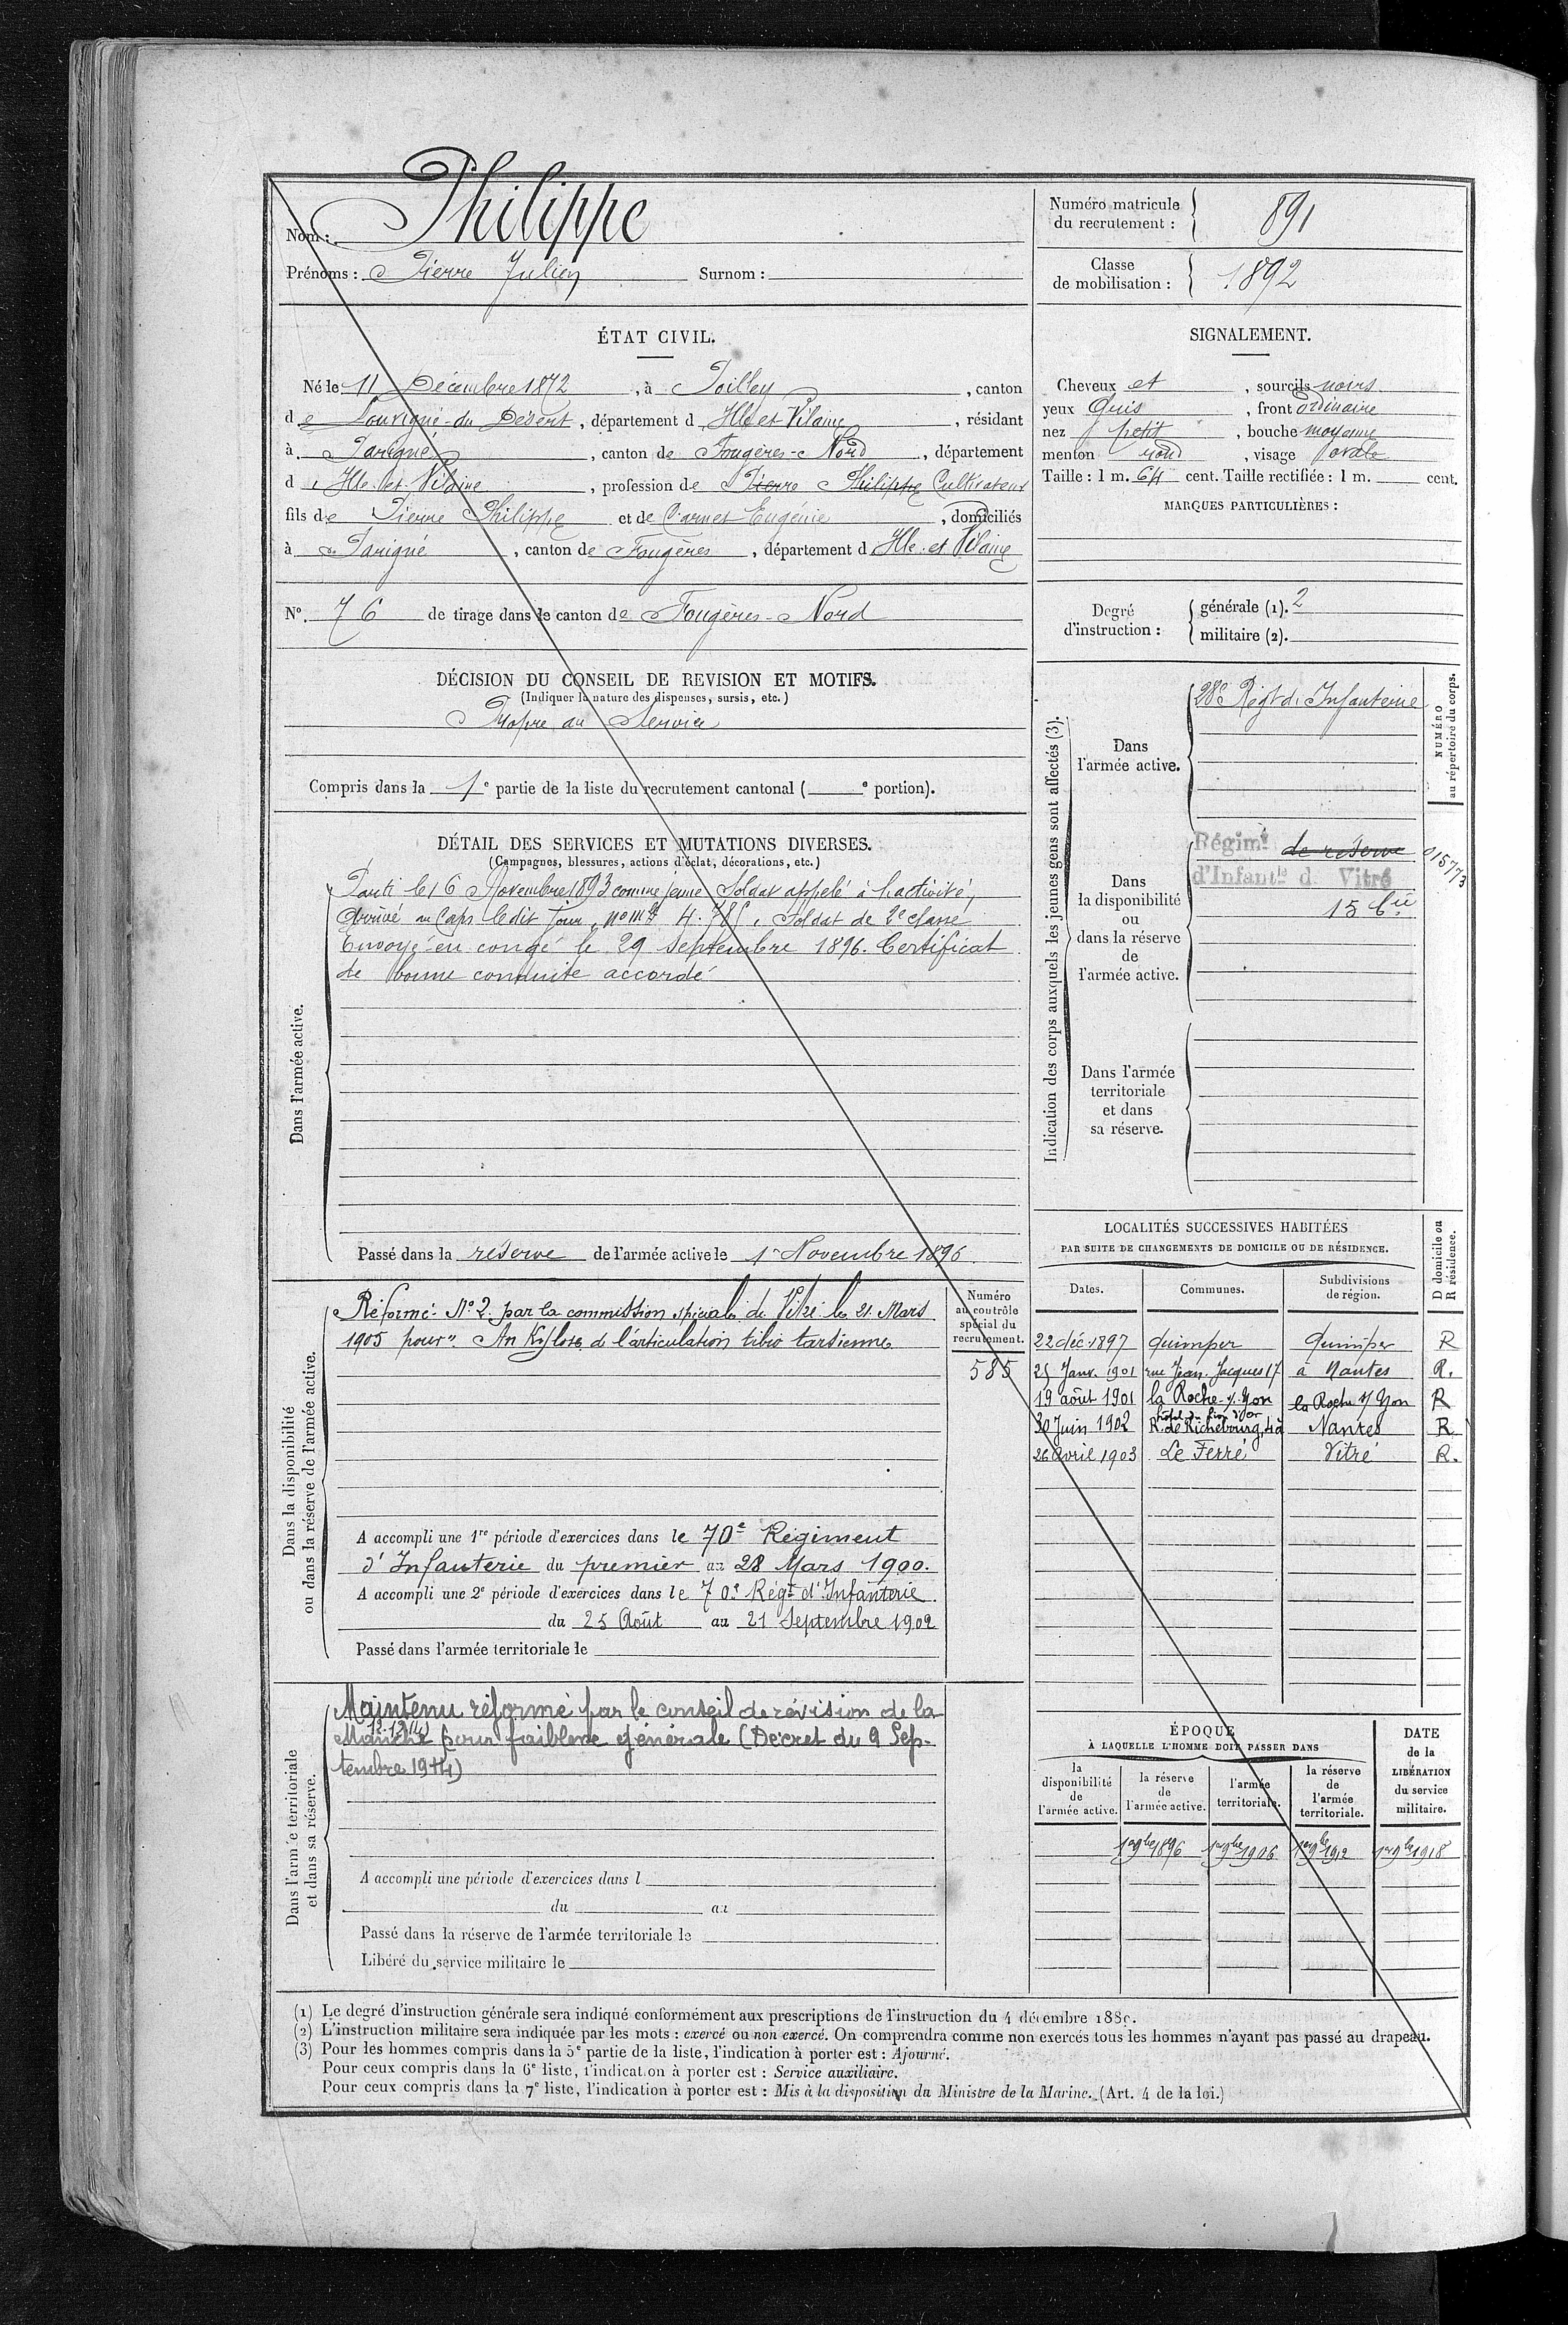 Nom : Philippe
Prénoms : Pierre Julien Surnom :
Numéro matricule
du recrutement : 891
Classe
de mobilisation : 1892
ÉTAT CIVIL.
Né le 11 Décembre 1872, à Poilley, canton
de Louvigné-du-Désert, département d'Ille et Vilaine, résidant
à Parigné, canton de Fougères-Nord, département
d'Ille-et-Vilaine, profession de Pierre Philippe Cultivateur
fils de Pierre Philippe et de Carnet Eugénie, domiciliés
à Parigné, canton de Fougères, département d'Ille-et-Vilaine
N° 76 de tirage dans le canton de Fougères-Nord
DÉCISION DU CONSEIL DE REVISION ET MOTIFS.
(Indiquer la nature des dispenses, sursis, etc.)
Propre au Service
Compris dans la 1e partie de la liste du recrutement cantonal ( e portion).
DÉTAIL DES SERVICES ET MUTATIONS DIVERSES.
(Campagnes, blessures, actions d'éclat, décorations, etc.)
Dans l'armée active.
Parti le 16 Novembre 1893 comme jeune Soldat appelé à l'activité,
Arrivé au Corps le dit jour, No mle 4.785, Soldat de 2e classe
Envoyé en congé le 29 septembre 1896. Certificat
de bonne conduite accordé
Passé dans la réserve de l'armée active le 1er Novembre 1896.
Dans la disponibilité
ou dans la réserve de l'armée active.
Réformé N° 2 par la commission spéciale de Vitré le 21 Mars
1905 pour "Ankylose de l'articulation tibio tarsienne
Numéro
au contrôle
spécial du
recrutement.
585
A accompli une 1re période d'exercices dans le 70e Régiment
d'Infanterie du premier au 28 Mars 1900.
A accompli une 2e période d'exercices dans le 70e Régt d'Infanterie
du 25 Août au 21 Septembre 1902
Passé dans l'armée territoriale le
Dans l'armée territoriale
et dans sa réserve.
Maintenu réformé par le conseil de révision de la
Manche pour faiblesse générale (Décret du 9 Sep-
tembre 1914)
A accompli une période d'exercices dans l
du au
Passé dans la réserve de l'armée territoriale le
Libéré du service militaire le
SIGNALEMENT.
Cheveux et, sourcils noirs
yeux Gris, front Ordinaire
nez petit, bouche moyenne
menton rond, visage ovale
Taille : 1 m. 64 cent. Taille rectifiée : 1 m. cent.
MARQUES PARTICULIÈRES :
Degré
d'instruction :
générale (1). 2
militaire (2).
Indication des corps auxquels les jeunes gens sont affectés (3).
NUMÉRO
au répertoire du corps.
Dans
l'armée active.
28e Régt d'Infanterie
Dans
la disponibilité
ou
dans la réserve
de
l'armée active.
Régimt de réserve
d'Infantie d. Vitré
15 Cie
015773
Dans l'armée
territoriale
et dans
sa réserve.
LOCALITÉS SUCCESSIVES HABITÉES
PAR SUITE DE CHANGEMENTS DE DOMICILE OU DE RÉSIDENCE.
D domicile ou
R résidence.
Dates. Communes. Subdivisions
de région.
22 déc. 1897 Quimper Quimper R
25 Janv. 1901 rue Jean-Jacques 17 à Nantes R.
19 août 1901 la Roche-s/-Yon la Roche s/ Yon R
hôtel du Lion d'Or
30 Juin 1902 R. de Richebourg, 4 à Nantes R
26 Avril 1903 Le Ferré Vitré R.
ÉPOQUE
À LAQUELLE L'HOMME DOIT PASSER DANS
DATE
de la
LIBÉRATION
du service
militaire.
la
disponibilité
de
l'armée active.
la réserve
de
l'armée active.
l'armée
territoriale.
la réserve
de
l'armée
territoriale.
1er 9bre 1896 1er 9bre 1906 1er 9bre 1912 1er 9bre 1918
(1) Le degré d'instruction générale sera indiqué conformément aux prescriptions de l'instruction du 4 décembre 1889.
(2) L'instruction militaire sera indiquée par les mots : exercé ou non exercé. On comprendra comme non exercés tous les hommes n'ayant pas passé au drapeau.
(3) Pour les hommes compris dans la 5e partie de la liste, l'indication à porter est : Ajourné.
Pour ceux compris dans la 6e liste, l'indication à porter est : Service auxiliaire.
Pour ceux compris dans la 7e liste, l'indication à porter est : Mis à la disposition du Ministre de la Marine. (Art. 4 de la loi.)